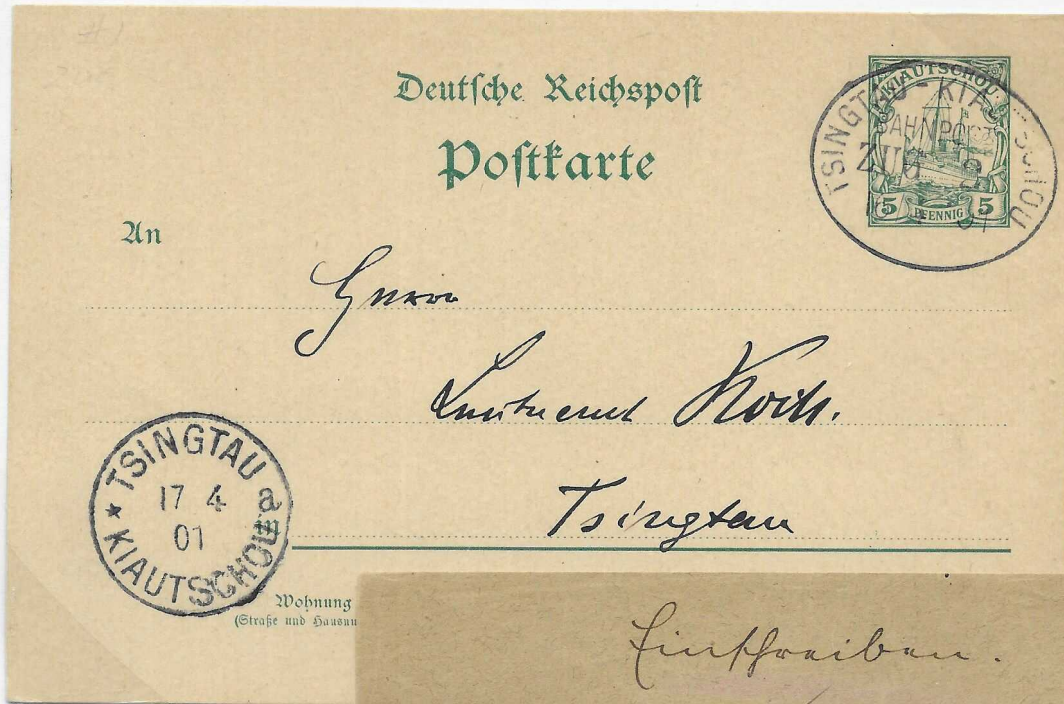 Deutsche Reichspost
Postkarte
KIAUTSCHOU
5 PFENNIG 5
TSINGTAU - KIAUTSCHOU
BAHNPOST
ZUG 2
01
An
Herrn
Leutnant Koch.
Tsingtau
TSINGTAU a
17 4
01
* KIAUTSCHOU
Wohnung
(Straße und Hausnu
Einschreiben.